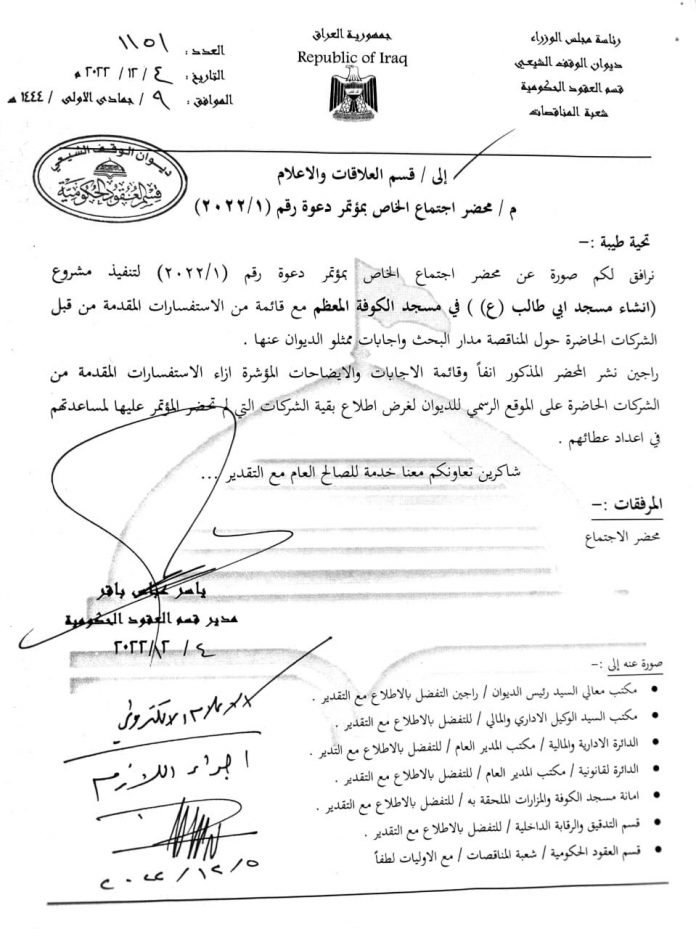 رئاسة مجلس الوزراء
ديوان الوقف الشيعي
قسم العقود الحكومية
شعبة المناقصات
جمهورية العراق
Republic of Iraq
العدد: ١١٥١
التاريخ: ٤ / ١٢ / ٢٠٢٢ م
الموافق: ٩ / جمادي الأولى / ١٤٤٤ هـ
ديوان الوقف الشيعي
قسم العقود الحكومية
إلى / قسم العلاقات والاعلام
م / محضر اجتماع الخاص بمؤتمر دعوة رقم (٢٠٢٢/١)
تحية طيبة :-
نرافق لكم صورة عن محضر اجتماع الخاص بمؤتمر دعوة رقم (٢٠٢٢/١) لتنفيذ مشروع
(انشاء مسجد ابي طالب (ع) ) في مسجد الكوفة المعظم مع قائمة من الاستفسارات المقدمة من قبل
الشركات الحاضرة حول المناقصة مدار البحث واجابات ممثلو الديوان عنها .
راجين نشر المحضر المذكور انفاً وقائمة الاجابات والايضاحات المؤشرة ازاء الاستفسارات المقدمة من
الشركات الحاضرة على الموقع الرسمي للديوان لغرض اطلاع بقية الشركات التي لم تحضر المؤتمر عليها لمساعدتهم
في اعداد عطائهم .
شاكرين تعاونكم معنا خدمة للصالح العام مع التقدير ...
المرفقات :-
محضر الاجتماع
ياسر عباس باقر
مدير قسم العقود الحكومية
٤ / ١٢ / ٢٠٢٢
صورة عنه إلى :-
• مكتب معالي السيد رئيس الديوان / راجين التفضل بالاطلاع مع التقدير .
• مكتب السيد الوكيل الاداري والمالي / للتفضل بالاطلاع مع التقدير .
• الدائرة الادارية والمالية / مكتب المدير العام / للتفضل بالاطلاع مع التدير .
• الدائرة لقانونية / مكتب المدير العام / للتفضل بالاطلاع مع التقدير .
• امانة مسجد الكوفة والمزارات الملحقة به / للتفضل بالاطلاع مع التقدير .
• قسم التدقيق والرقابة الداخلية / للتفضل بالاطلاع مع التقدير .
• قسم العقود الحكومية / شعبة المناقصات / مع الاوليات لطفاً
الاعلام الالكتروني
اجراء اللازم
٢٠٢٢/١٢/٥